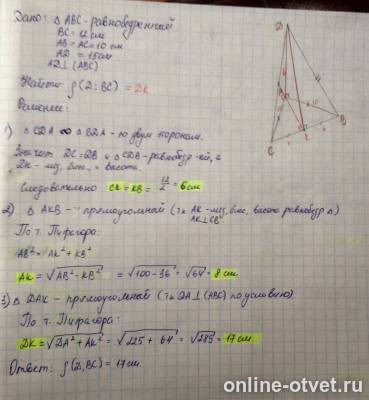 Дано: △ ABC - равнобедренный
BC = 12 см
AB = AC = 10 см
AD = 15 см
AD ⊥ (ABC)
Найти: ρ(D; BC) = DK
Решение:
1) △ CDA ∞ △ BDA - по двум сторонам.
Значит DC = DB и △ CDB - равнобедр-ый, а
DK - мед, бис. и высота.
Следовательно CK = KB = 12/2 = 6 см
2) △ AKB - прямоугольный (т.к AK - мед, бис, высота равнобедр △)
AK ⊥ CB
По т. Пифагора:
AB² = AK² + KB²
AK = √AB² - KB² = √100 - 36 = √64 = 8 см
3) △ DAK - прямоугольный (т.к DA ⊥ (ABC) по условию)
По т. Пифагора:
DK = √DA² + AK² = √225 + 64 = √289 = 17 см.
Ответ: ρ(D, BC) = 17 см.
D
A
C
K
B
online-otvet.ru